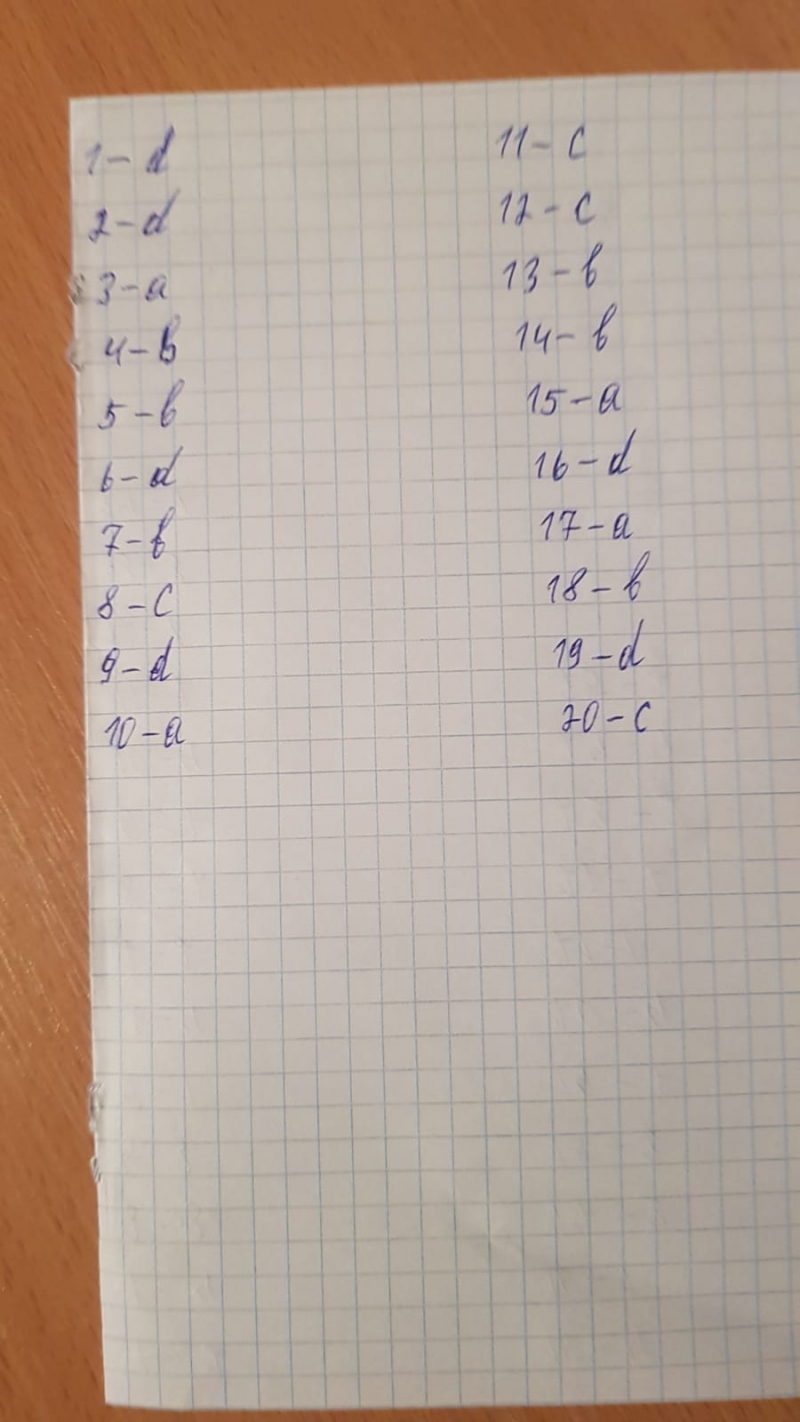 1 - d
2 - d
3 - a
4 - b
5 - b
6 - d
7 - b
8 - c
9 - d
10 - a
11 - c
12 - c
13 - b
14 - b
15 - a
16 - d
17 - a
18 - b
19 - d
20 - c